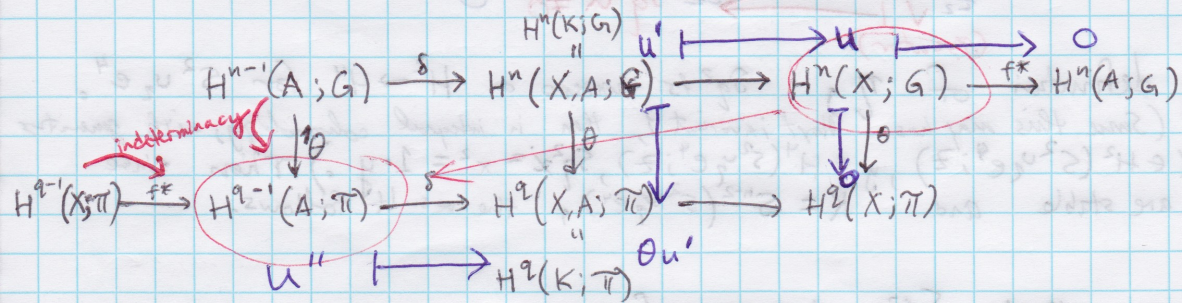 Hⁿ(K;G) u' ↦ u ↦ 0
"
Hⁿ⁻¹(A;G) →δ Hⁿ(X,A;G) → Hⁿ(X;G) →f* Hⁿ(A;G)
indeterminacy ↓¹θ ↓θ ↓θ
H^{q-1}(X;π) →f* H^{q-1}(A;π) →δ H^q(X,A;π) → 0 H^q(X;π)
"
u'' ↦ H^q(K;π) θu'